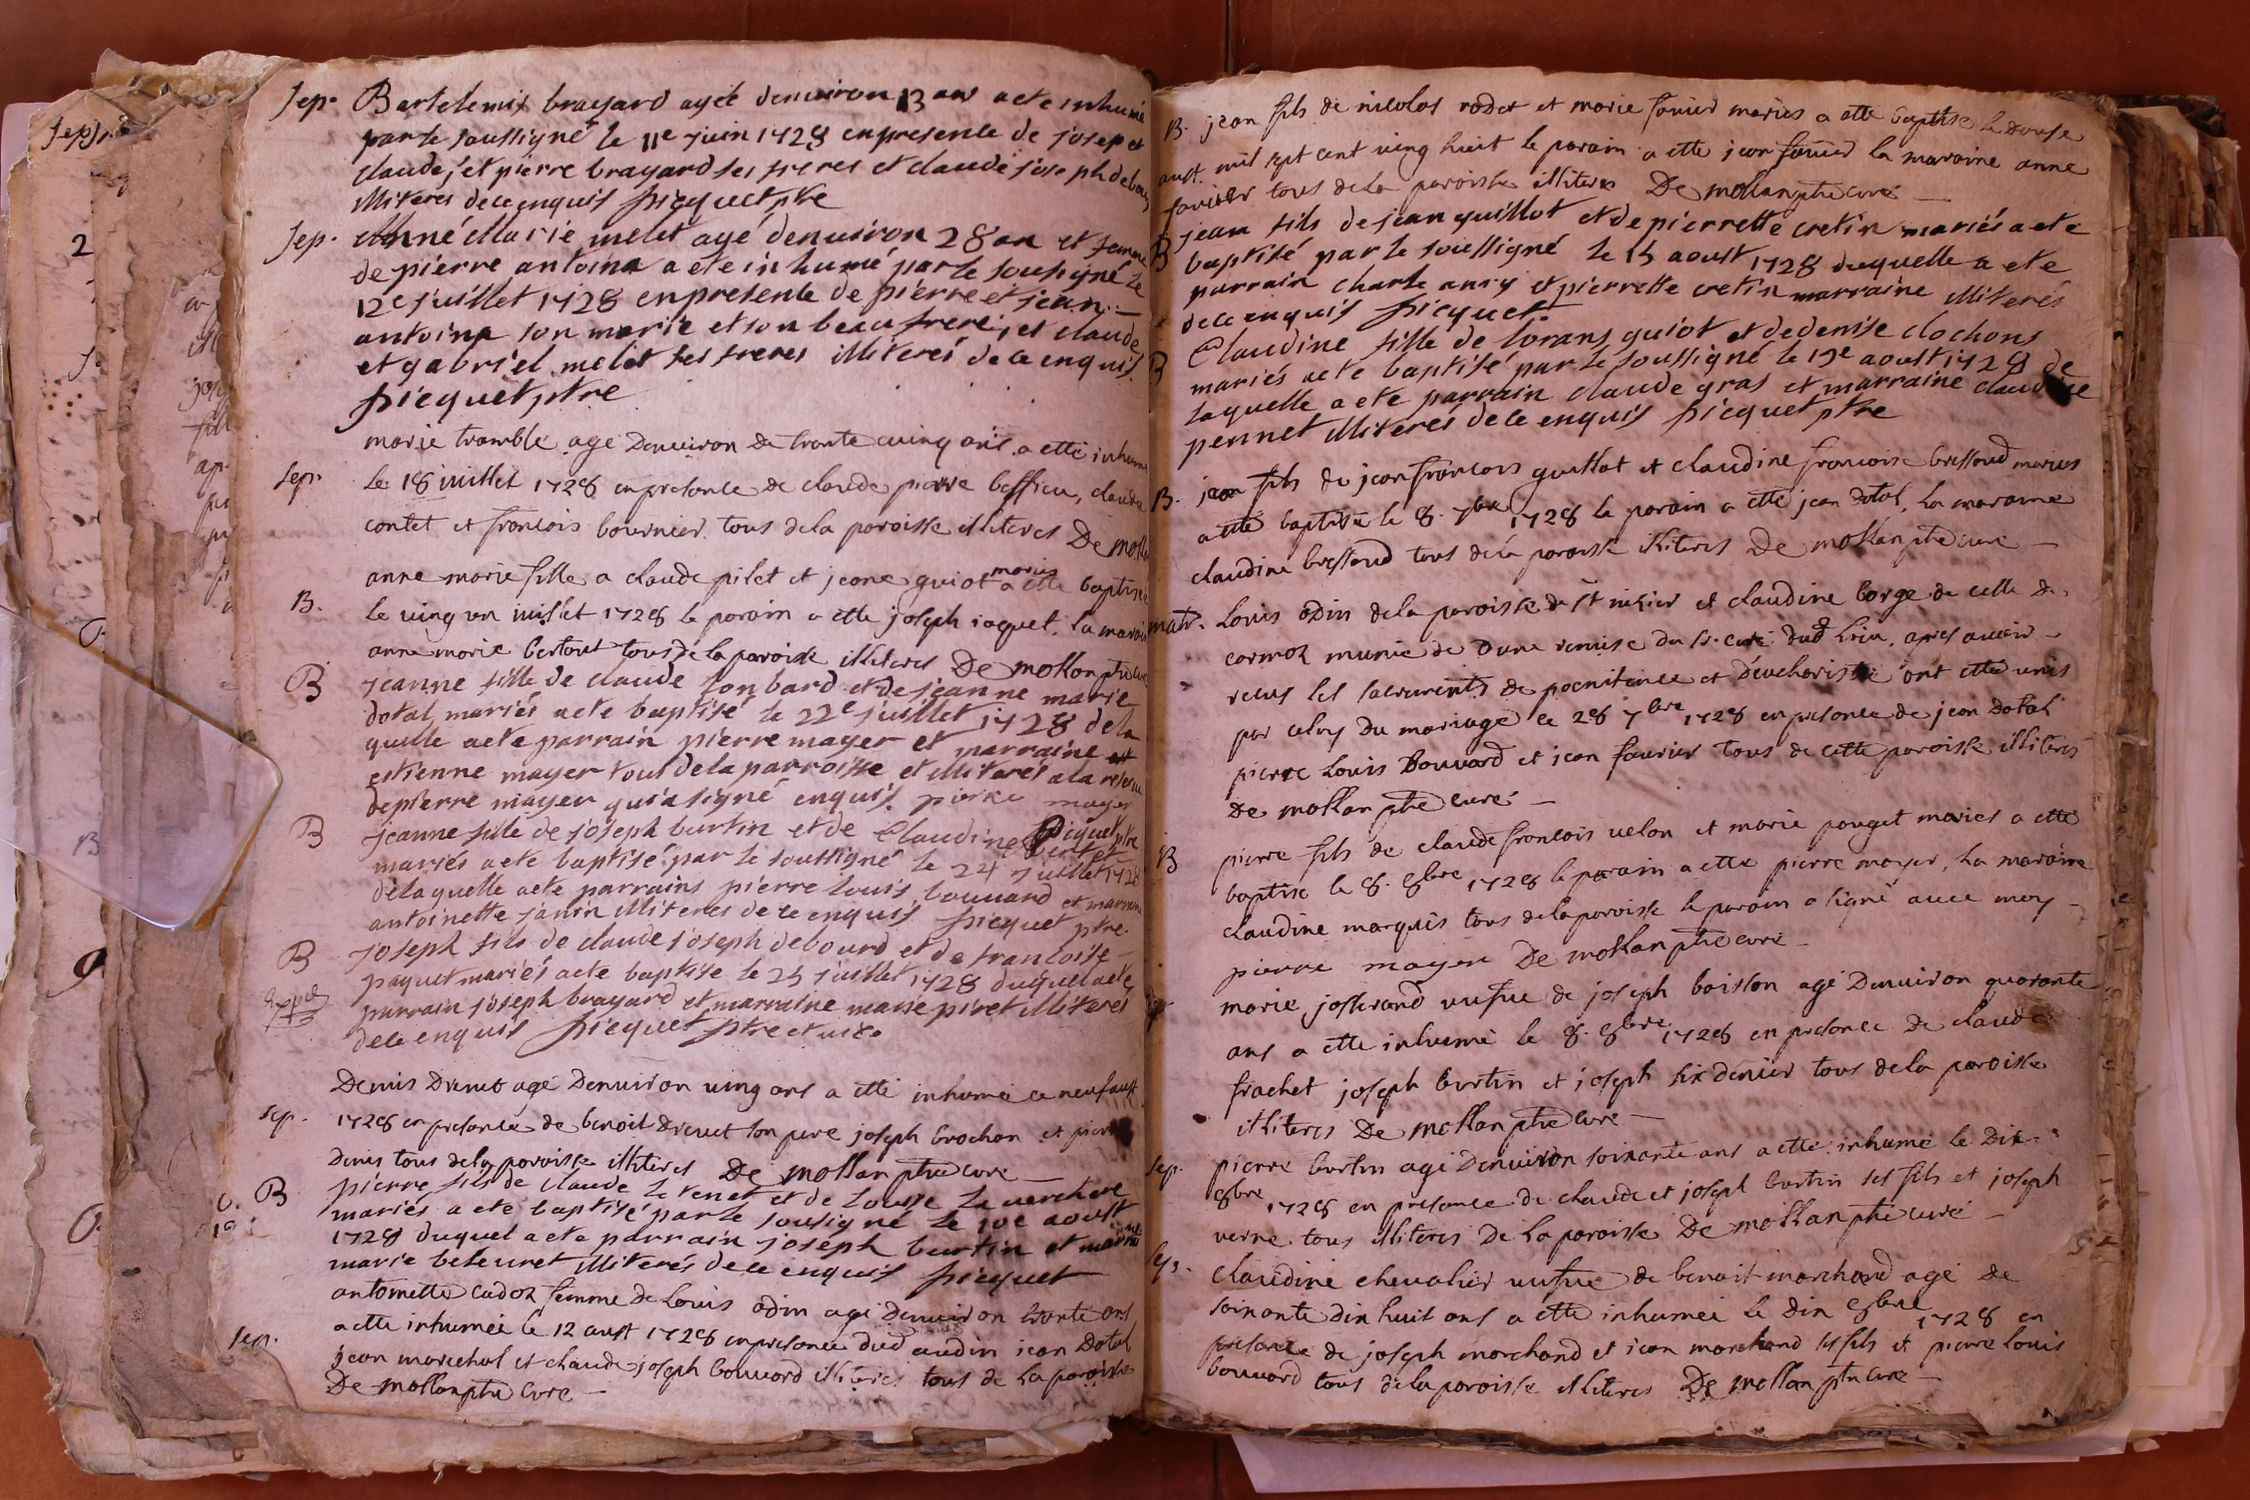 Sep. Bartelemix brayard agéé denuiron 13 ans a ete inhumé
par le soussigné le 11e juin 1728 en presente de josep et
claude, et pierre brayard ses freres et claude joseph debourd
illiteres de ce enquis picquet ptre
Sep. Anné Marie melet agé denuiron 28 an et femme
de pierre antoina a ete inhumé par le sousigné le
12e juillet 1728 en presente de pierre et jean
antoina son marie et son beau frere, et claude
et gabriel melet ses freres illiterés de ce enquis
picquet ptre
marie tramble agé denuiron de trante cuinq ans a etté inhumé
Sep. le 18 juillet 1728 en presance de claude pierre beffieu, claude
contet et francois bournier tous de la paroisse illiteres De molla
anne marie fille a claude pilet et jeane guiot mariés a etté baptisé
B. le uing un juillet 1728 le parain a etté joseph jaquet, la maraine
anne marie bertout tous de la paroisse illiteres De mollan ptre cure
B jeanne fille de claude fonbard et de jeanne marie
dotal, mariés a ete baptisé le 22e juillet 1728 de la
quelle a ete parrain pierre mayer et marraine
estienne mayer tous de la parroisse et illiterés a la reserue
de pierre mayer qui a signé enquis pierre mayer
picquet ptre
B jeanne fille de joseph burtin et de Claudine
mariés a ete baptisé par le soussigné le 24 juillet 1728
de laquelle a ete parrains pierre louis bouuard et marraine
antoinette janin illiteres de ce enquis picquet ptre
B joseph fils de claude joseph debourd et de francoise
paquet mariés a ete baptise le 25 juillet 1728 duquel a ete
parrain joseph brayard et marraine marie piret illiteres
de ce enquis picquet ptre et uic.
Denis Dreuet agé denuiron uing ans a etté inhumée ce neuf aust
sep. 1728 en presance de benoit Dreuet son pere joseph brochon et pierre
denis tous de la paroisse illiteres De mollan ptre cure
B pierre fils de claude le tenet et de louise la uerchere
mariés a ete baptisé par le sousigné le 10e aoust
1728 duquel a ete parrain joseph burtin et marraine
marie beleuret illiterés de ce enquis picquet
antoinette cadoz femme de louis odin agé denuiron trante ans
Sep. a etté inhumée le 12 aust 1728 en presance dud audin jean dotal
jean marechal et claude joseph bouuard illiteres tous de la paroisse
De mollan ptre cure
B. jean fils de nicolas rodet et marie fauier mariés a etté baptisé le douse
aust mil sept cent uing huit le parain a etté jean fauier la maraine anne
fauier tous de la paroisse illiteres De mollan ptre curé
B jean fils de jean guillot et de pierrette cretin mariés a ete
baptisé par le soussigné le 15 aoust 1728 duquelle a ete
parrain charle ansy et pierrette cretin marraine illiterés
de ce enquis picquet
B Claudine fille de lorans guiot et de denise clochons
mariés a ete baptisé par le soussigné le 19e aoust 1728 de
laquelle a ete parrain claude gras et marraine claudine
pennet illiterés de ce enquis picquet ptre
B. jean fils de jean francois guillot et claudine francoise bressoud mariés
a etté baptisé le 8. 7bre 1728 le parain a etté jean dotal, la maraine
claudine bressoud tous de la paroisse illiteres De mollan ptre cure
mar. Louis odin de la paroisse de st nizier et claudine borge de celle de
cormoz munie de dune remise du sr. curé dud lieu, apres auoir
receus les sacrements de poenitence et d'eucharistie ont etté unis
par celuy du mariage le 28 7bre 1728 en presance de jean dotal
pierre Louis bouuard et jean faurier tous de cette paroisse illiteres
De mollan ptre curé
B pierre fils de claude francois uelon et marie pouget mariés a etté
baptisé le 8. 8bre 1728 le parain a etté pierre mayer, la maraine
claudine marquis tous de la paroisse le parain a signé auec moy
pierre mayer De mollan ptre cure
marie josserand uefue de joseph boisson agé denuiron quarante
ans a etté inhumé le 8. 8bre 1728 en presance de claude
frachet joseph burtin et joseph six denier tous de la paroisse
illiteres De mollan ptre cure
Sep. pierre burtin agé denuiron soixante ans a etté inhumé le dix
8bre 1728 en presance de claude et joseph burtin ses fils et joseph
uerne tous illiteres de la paroisse De mollan ptre curé
Sep. claudine cheualier uefue de benoit marchand agé de
soixante dix huit ans a etté inhumée le dix 8bre 1728 en
presance de joseph marchand et jean marchand ses fils et pierre louis
bouuard tous de la paroisse illiteres De mollan ptre cure